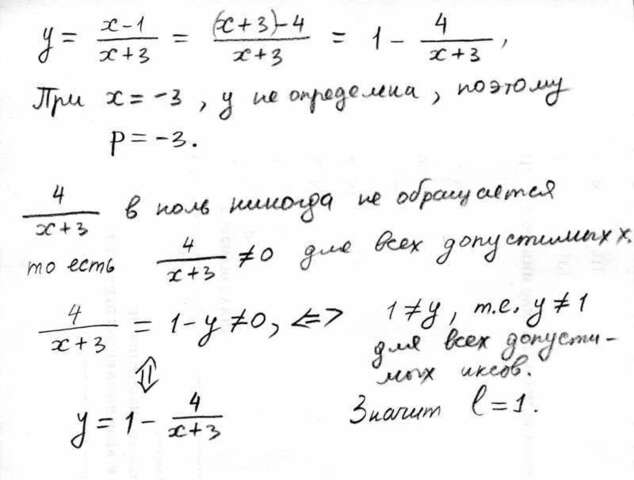 y = \frac{x-1}{x+3} = \frac{(x+3)-4}{x+3} = 1 - \frac{4}{x+3},
При x = -3, y не определена, поэтому
p = -3.
\frac{4}{x+3} в ноль никогда не обращается
то есть \frac{4}{x+3} ≠ 0 для всех допустимых x.
\frac{4}{x+3} = 1 - y ≠ 0, <=> 1 ≠ y, т.е. y ≠ 1
для всех допусти-
мых иксов.
⇕
y = 1 - \frac{4}{x+3}
Значит l = 1.